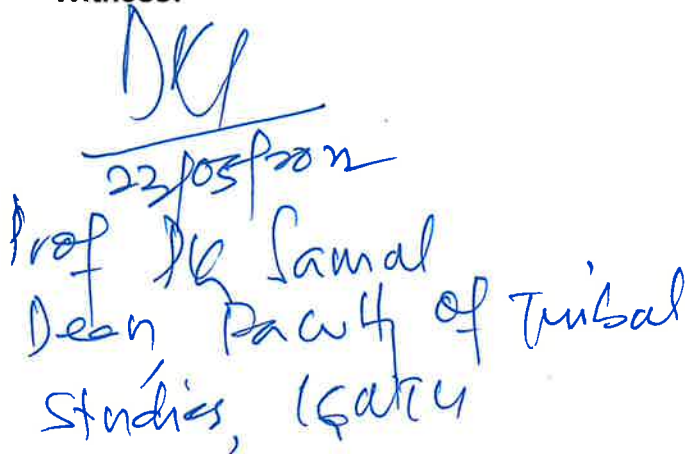 Witness:
DKS
23/05/2022
Prof DK Samal
Dean, Faculty of Tribal
Studies, IGNTU